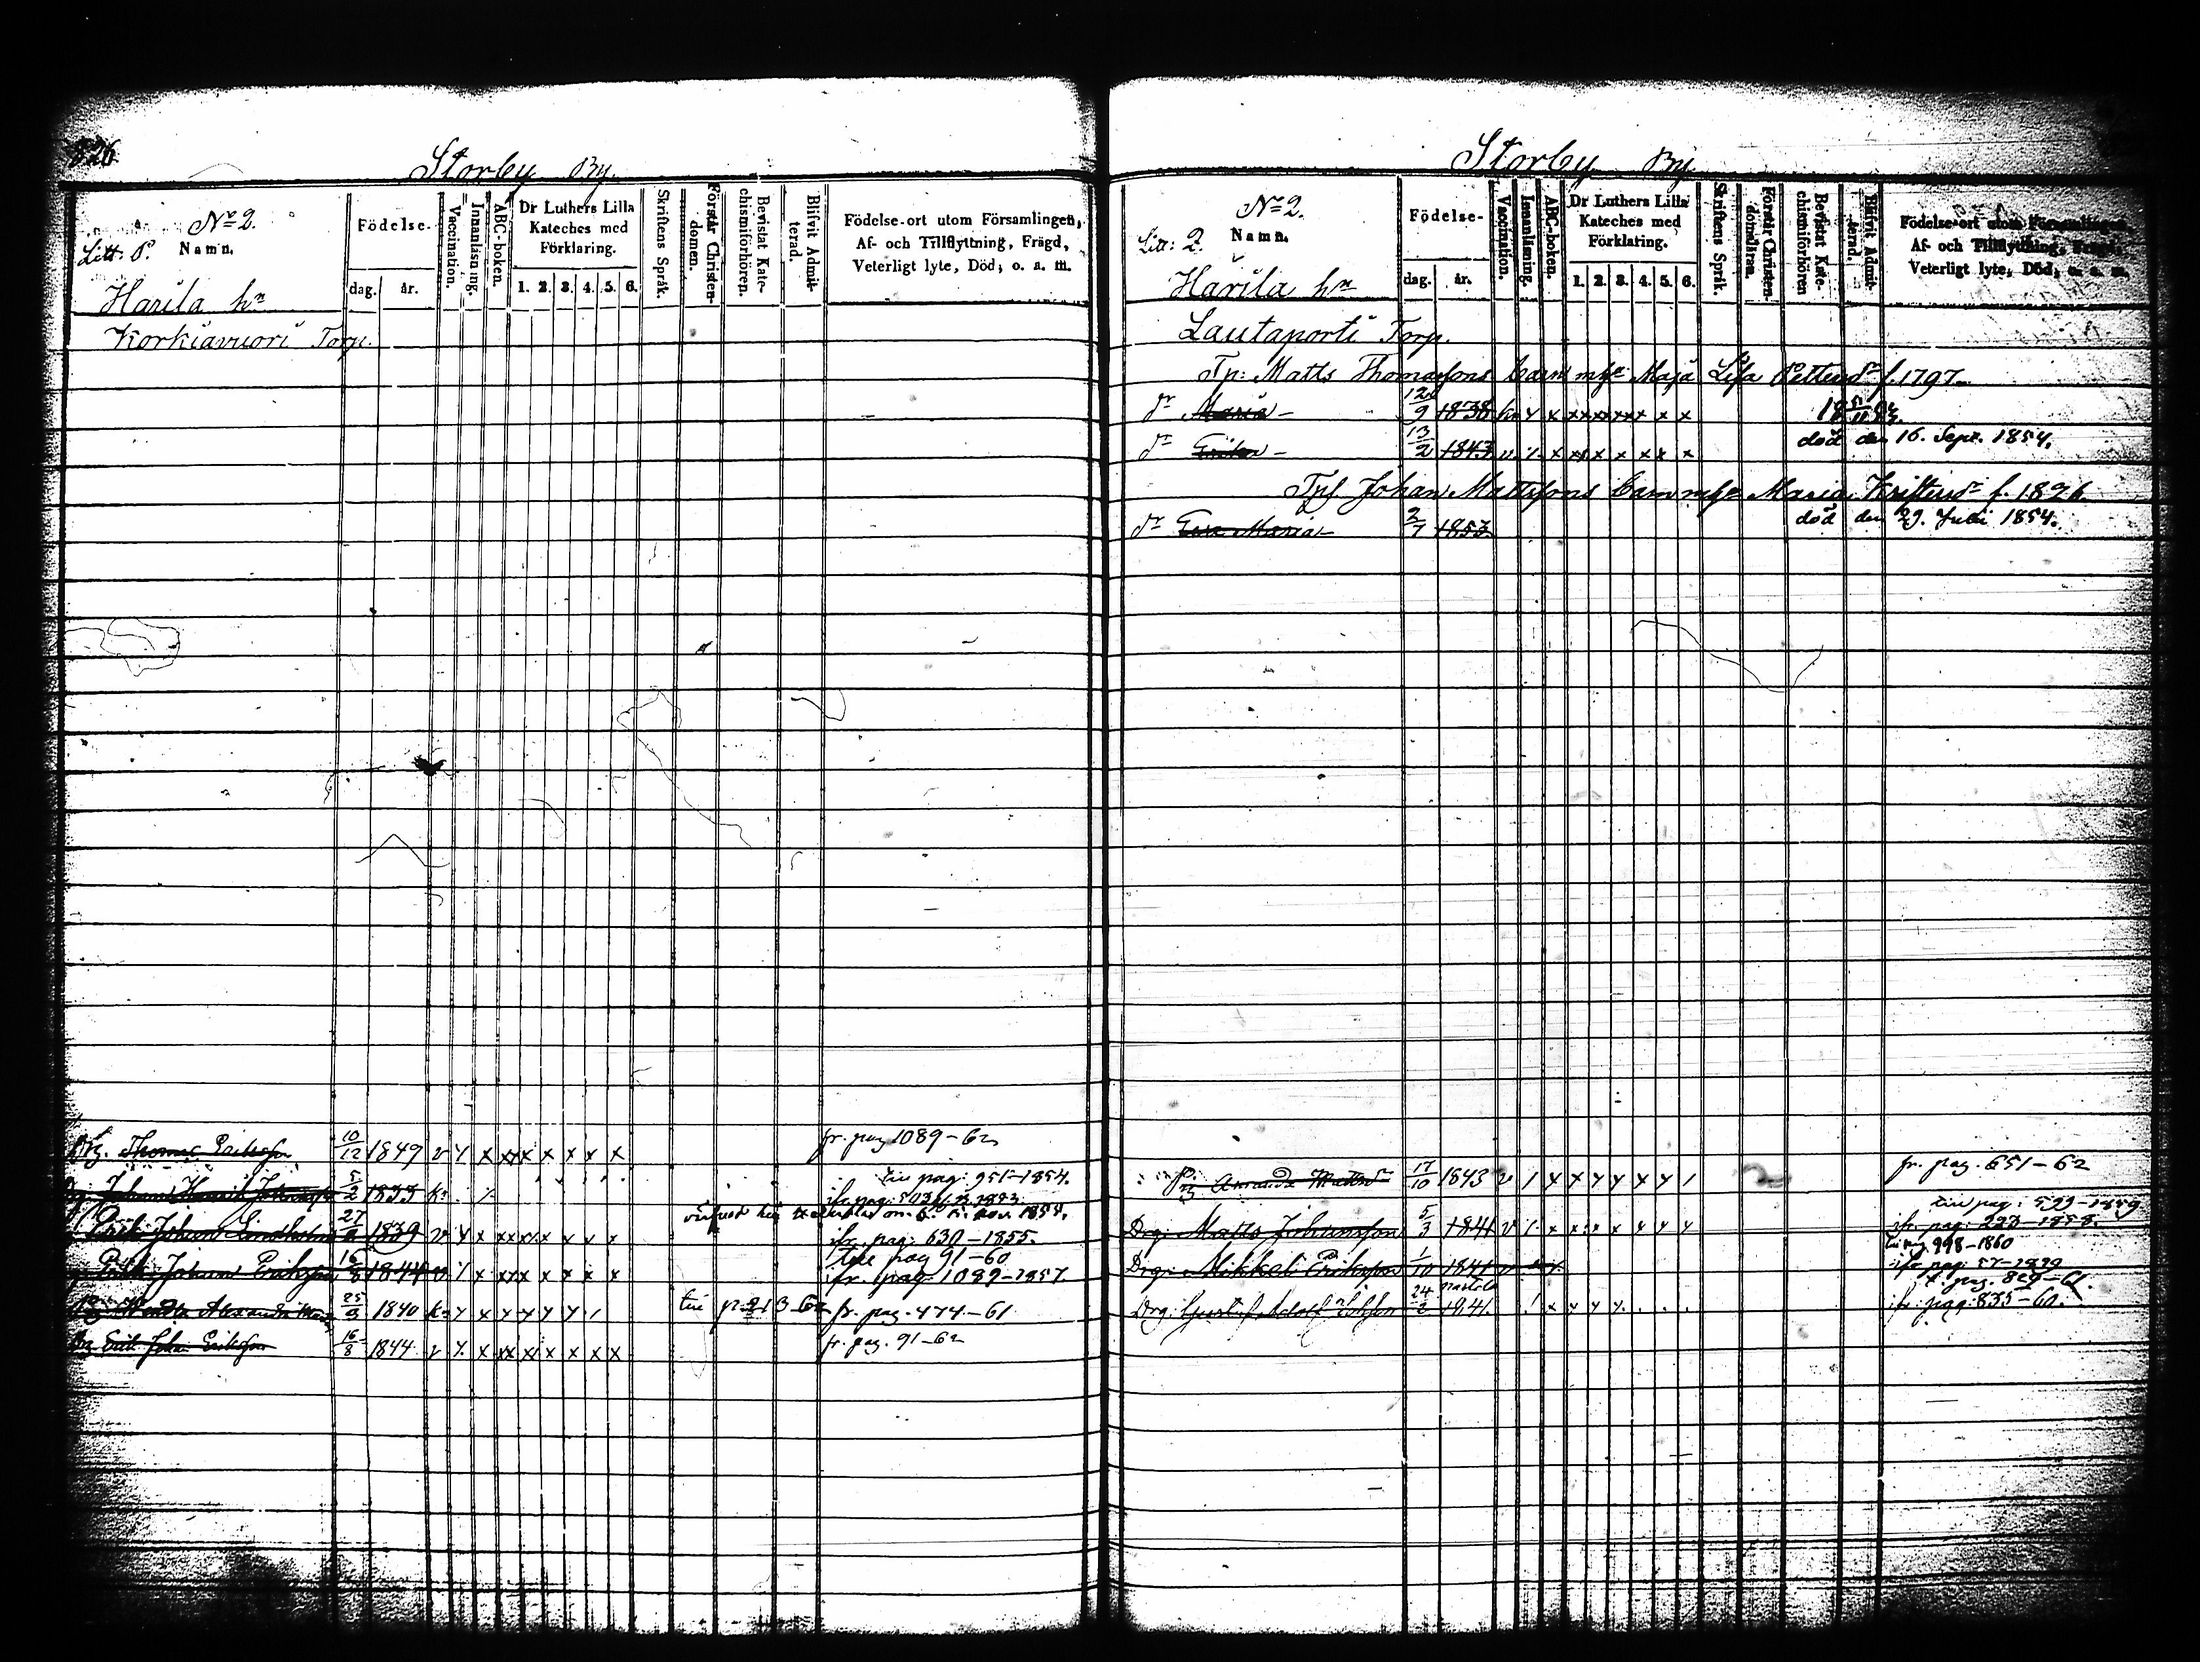 826
Storby By
Nr 2.
Litt. P. Namn.
Födelse-
dag. år.
Vaccination.
Innanläsning.
ABC-boken.
Dr Luthers Lilla Kateches med Förklaring.
1. 2. 3. 4. 5. 6.
Skriftens Språk.
Förstår Christendomen.
Bevistat Katechismiförhören.
Blifvit Admitterad.
Födelse-ort utom Församlingen,
Af- och Tillflyttning, Frägd,
Veterligt lyte, Död, o. a. m.
Harila hn
Korkiavuori Torp.
Thomas Eriksson 10/12 1849 v x x x x x x x fr. pag 1089-62
till pag: 951-1854.
Johan Henrik 5/2 1833 k.
Erik Johan 27 1839 v x x x x x x x ifr. pag: 630-1855.
till pag 91-60
Erik Johan Eriksson 16/8 1844 v x x x x x x x ifr. pag 1089-1857.
Alexandra 25 1840 k. till p. 213-62 fr. pag. 474-61
Erik Johan Eriksson 16/8 1844 v x x x x x x x fr. pag. 91-62
Storby By
Nr 2.
Litt: Namn.
Födelse-
dag. år.
Vaccination.
Innanläsning.
ABC-boken.
Dr Luthers Lilla Kateches med Förklaring.
1. 2. 3. 4. 5. 6.
Skriftens Språk.
Förstår Christendomsläran.
Bevistat Katechismiförhören
Blifvit Admitterad.
Födelse-ort utom Församlingen,
Af- och Tillflyttning, Frägd,
Veterligt lyte, Död, o. a. m.
Harila hn
Lautaporti Torp.
Tp: Matts Thomassons barn m. Maja Lisa Pettersdr f. 1797
dr Maria 12/9 1838
dr 13/2 1843 död den 16. Sept. 1854.
Johan Mattssons barn m. Maria f. 1826
dr Eva Maria 2/7 1853 död den 29. Juli 1854.
Pig Amanda Mattsdr 17/10 1843 v fr. pag. 651-62
till pag: 599-1859
Drg: Matts Johansson 5/3 1841 v ifr. pag: 293-1858.
till pag. 998-1860
Drg: Mikkel Eriksson 1/10 1841
t. pag. 829-61.
Drg: Gustaf Adolf 24/2 1841. ifr. pag: 835-60.